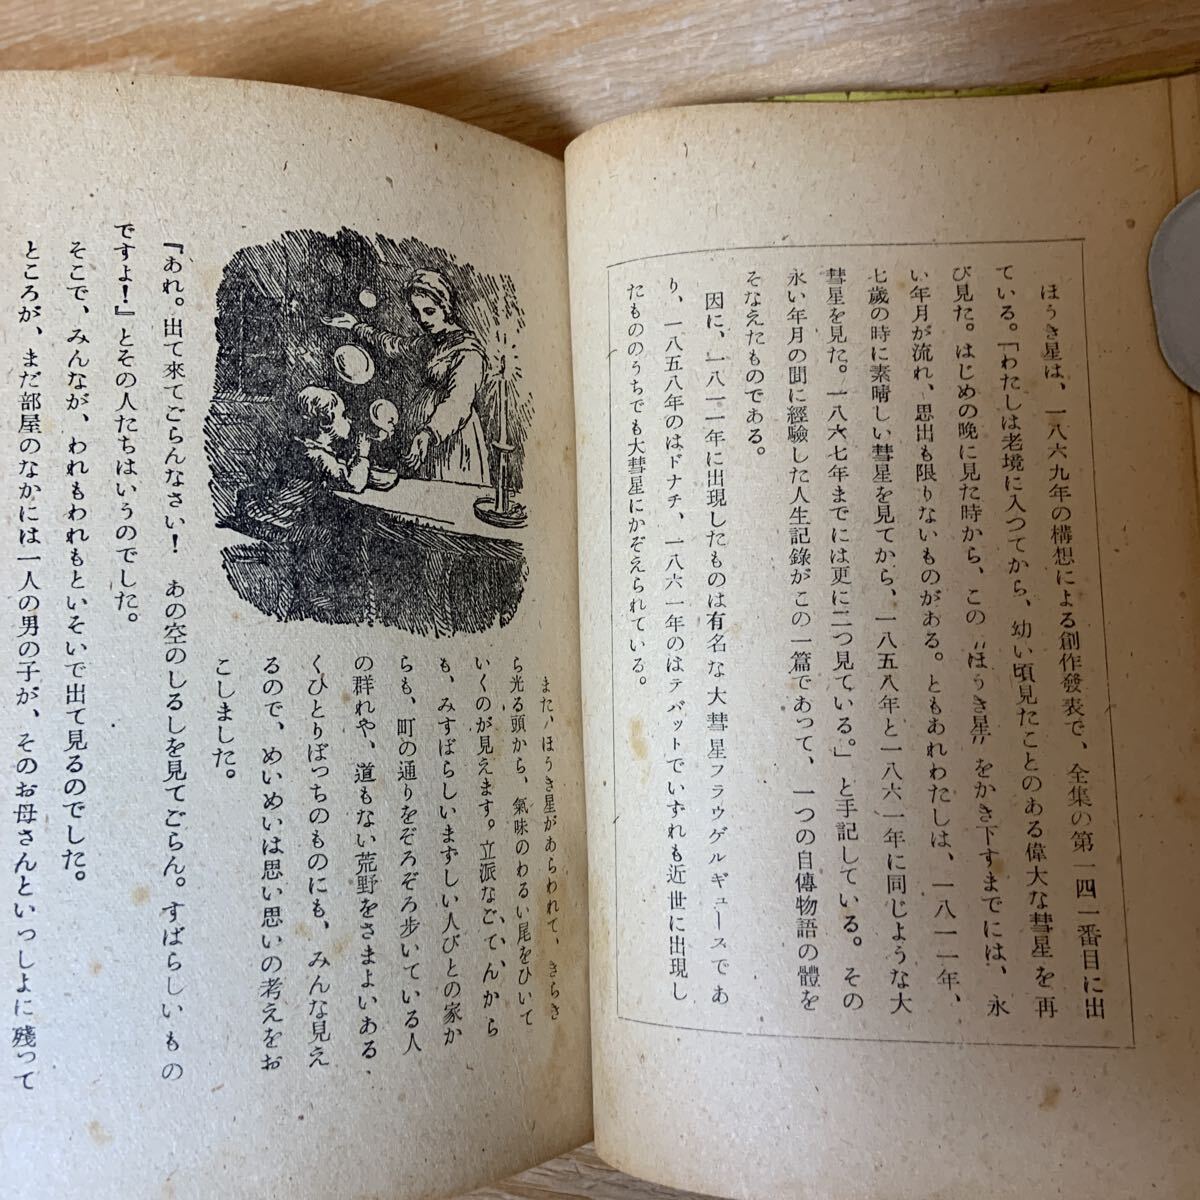 ほうき星は、一八六九年の構想による創作發表で、全集の第一四一番目に出
ている。「わたしは老境に入つてから、幼い頃見たことのある偉大な彗星を再
び見た。はじめの晩に見た時から、この〝ほうき星〟をかき下すまでには、永
い年月が流れ、思出も限りないものがある。ともあれわたしは、一八一一年、
七歲の時に素晴しい彗星を見てから、一八五八年と一八六一年に同じような大
彗星を見た。一八六七年までには更に二つ見ている。」と手記している。その
永い年月の間に經驗した人生記錄がこの一篇であって、一つの自傳物語の體を
そなえたものである。
因に、一八一一年に出現したものは有名な大彗星フラウゲルギュースであ
り、一八五八年のはドナチ、一八六一年のはテバットでいずれも近世に出現し
たもののうちでも大彗星にかぞえられている。
また、ほうき星があらわれて、きらき
ら光る頭から、氣味のわるい尾をひいて
いくのが見えます。立派なごてんから
も、みすばらしいまずしい人びとの家か
らも、町の通りをぞろぞろ歩いている人
の群れや、道もない荒野をさまよいある
くひとりぼっちのものにも、みんな見え
るので、めいめいは思い思いの考えをお
こしました。
『あれ。出て來てごらんなさい！　あの空のしるしを見てごらん。すばらしいもの
ですよ！』とその人たちはいうのでした。
そこで、みんなが、われもわれもといそいで出て見るのでした。
ところが、まだ部屋のなかには一人の男の子が、そのお母さんといっしよに殘って